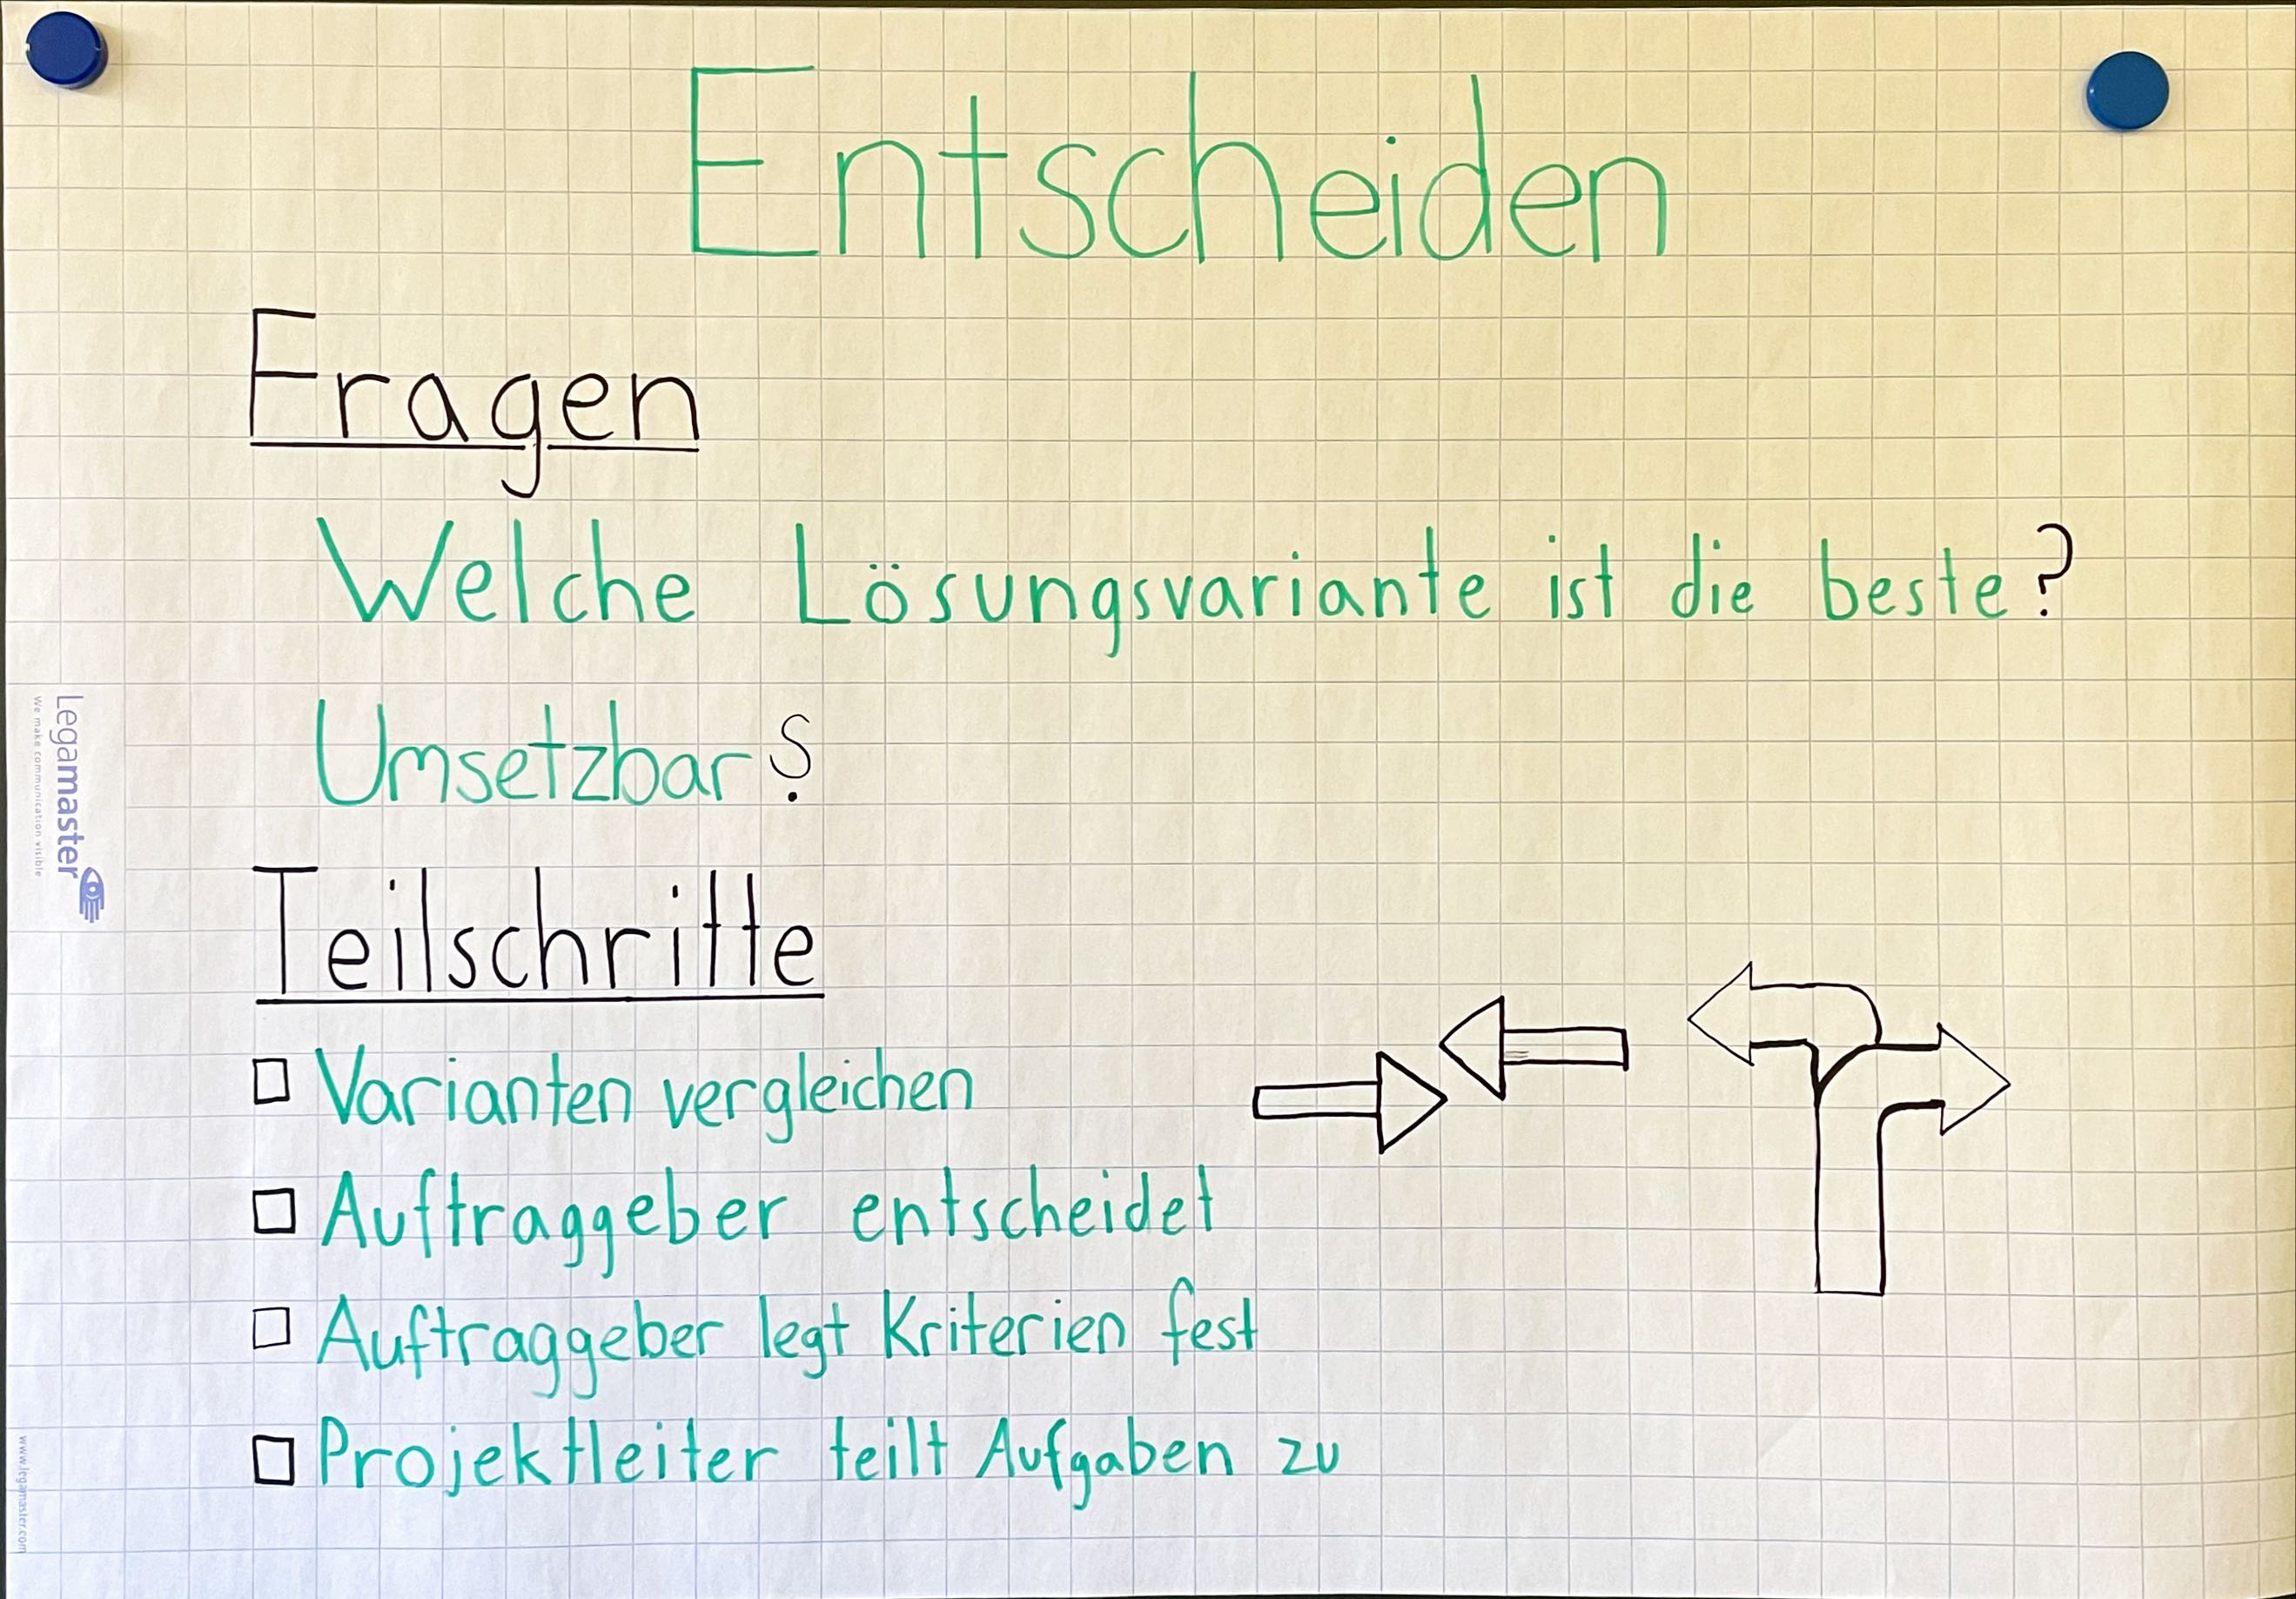 Entscheiden
Fragen
Welche Lösungsvariante ist die beste?
Umsetzbar?
Teilschritte
□ Varianten vergleichen
□ Auftraggeber entscheidet
□ Auftraggeber legt Kriterien fest
□ Projektleiter teilt Aufgaben zu
Legamaster
We make communication visible
www.legamaster.com